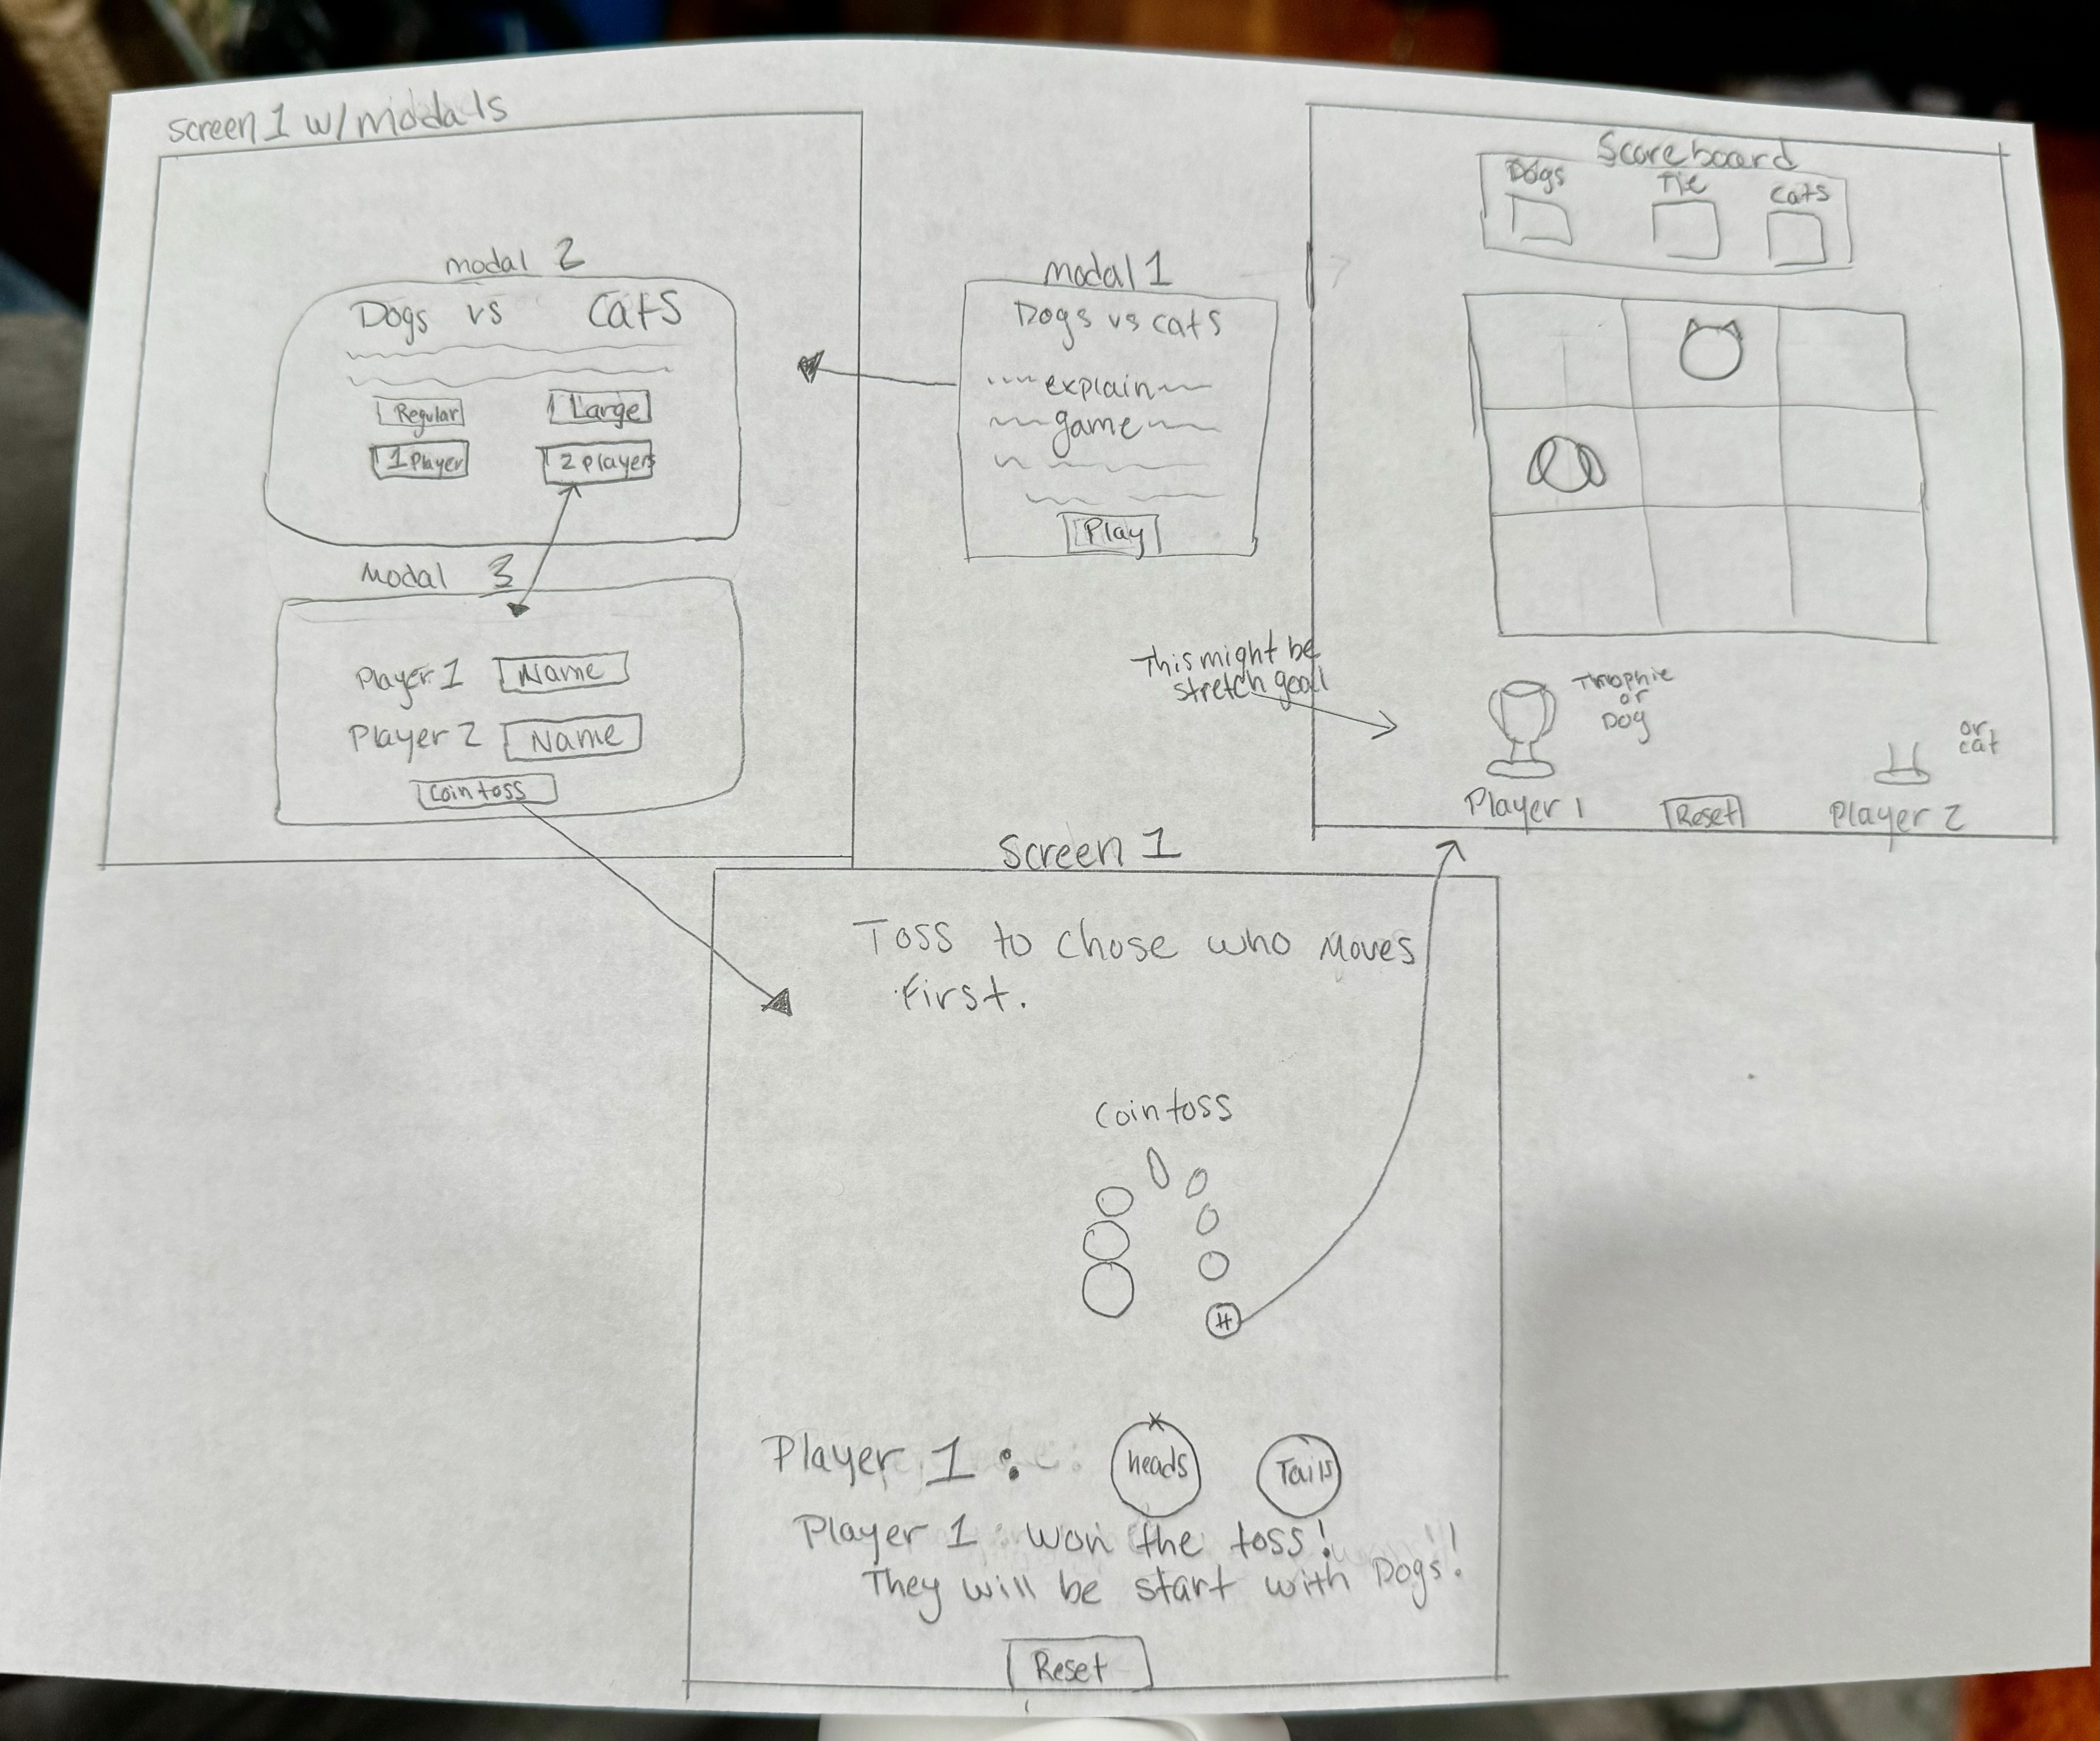 Screen 1 w/ modals
modal 2
Dogs vs Cats
Regular
Large
1 Player
2 players
Modal 3
Player 1 Name
Player 2 Name
Coin toss
modal 1
Dogs vs cats
explain
game
Play
Scoreboard
Dogs
Tie
Cats
This might be
stretch goal
Throphie
or
Dog
or
cat
Player 1
Reset
Player 2
Screen 1
Toss to chose who moves
first.
Coin toss
H
Player 1 :
heads
Tails
Player 1 won the toss!
They will be start with Dogs!
Reset